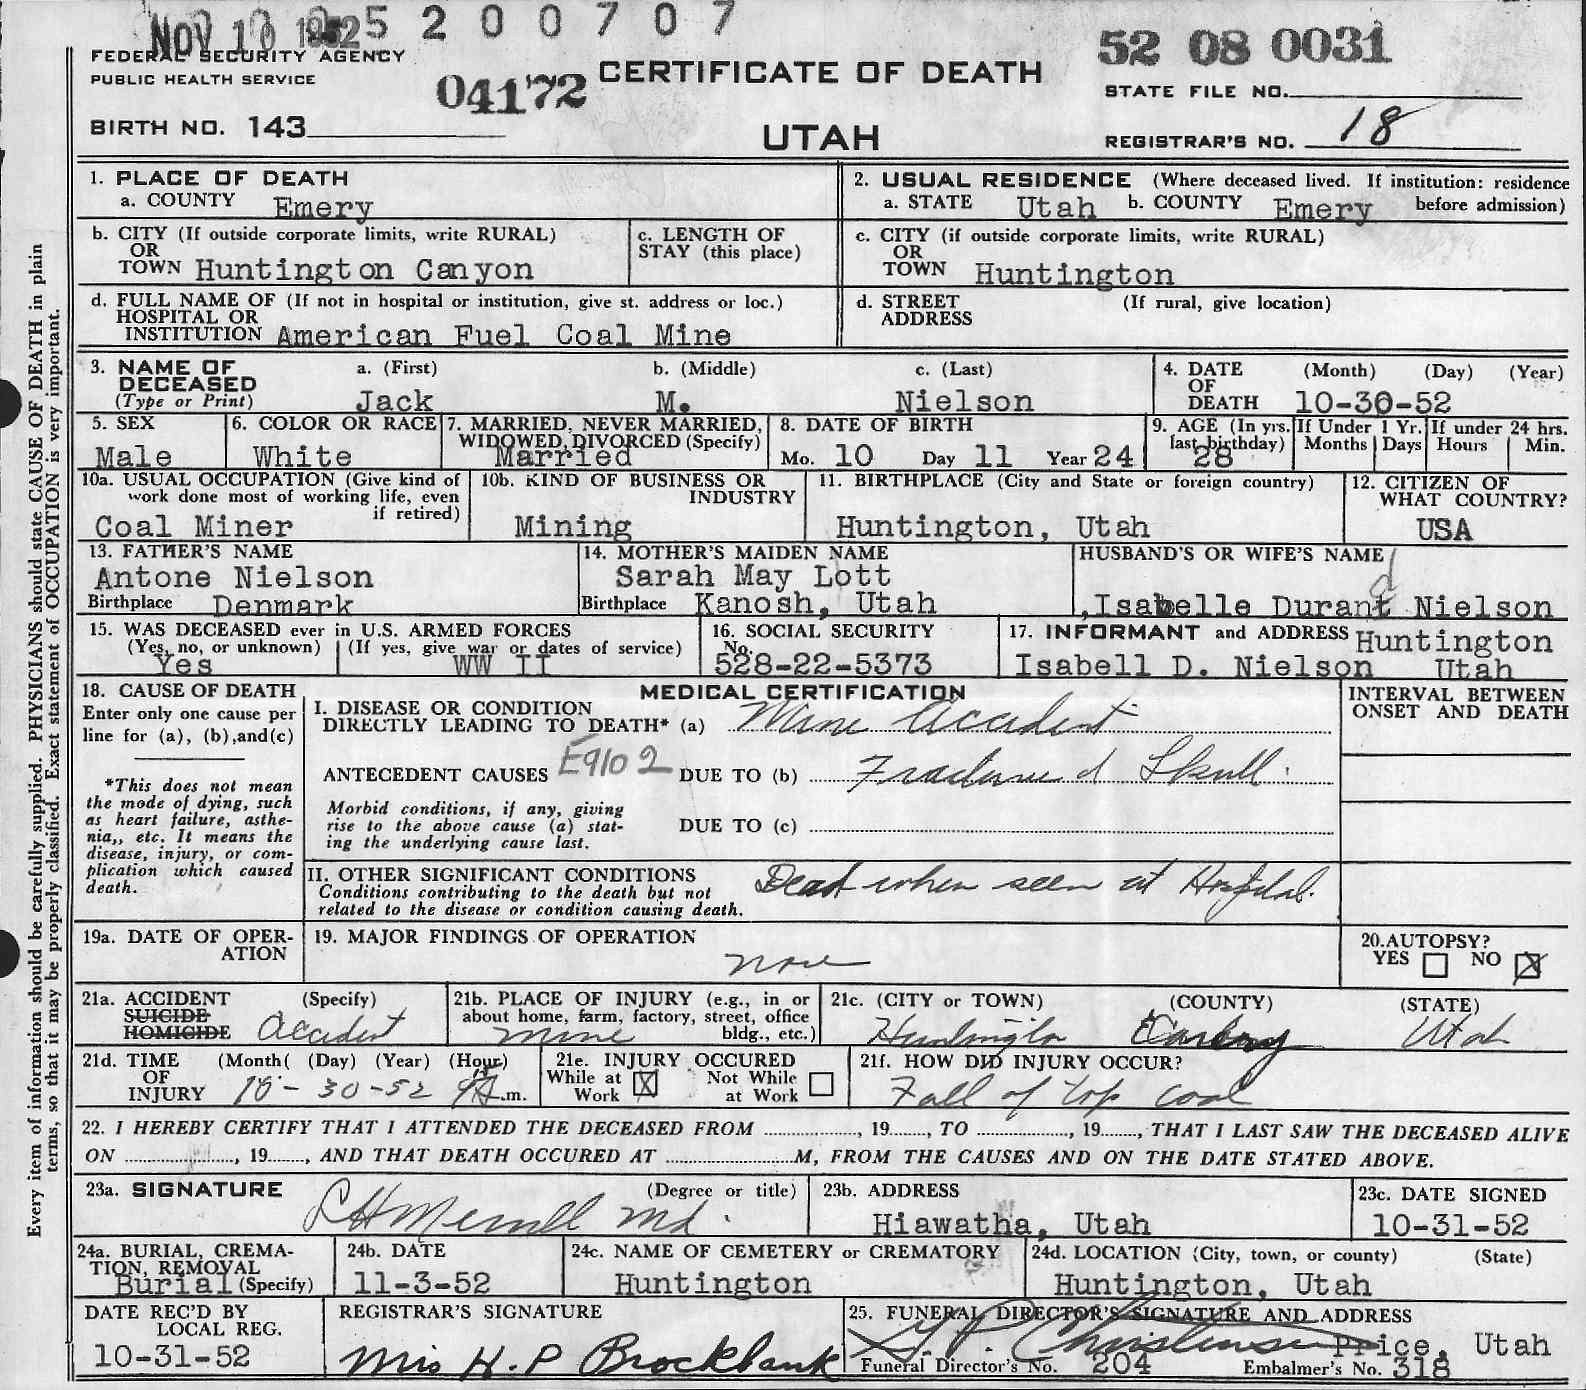 NOV 10 1952 5 2 0 0 7 0 7
FEDERAL SECURITY AGENCY
PUBLIC HEALTH SERVICE
04172
CERTIFICATE OF DEATH
52 08 0031
STATE FILE NO.
BIRTH NO. 143
UTAH
REGISTRAR'S NO. 18
Every item of information should be carefully supplied. PHYSICIANS should state CAUSE OF DEATH in plain
terms, so that it may be properly classified. Exact statement of OCCUPATION is very important.
1. PLACE OF DEATH
a. COUNTY Emery
2. USUAL RESIDENCE (Where deceased lived. If institution: residence
a. STATE Utah b. COUNTY Emery before admission)
b. CITY (If outside corporate limits, write RURAL)
OR
TOWN Huntington Canyon
c. LENGTH OF
STAY (this place)
c. CITY (if outside corporate limits, write RURAL)
OR
TOWN Huntington
d. FULL NAME OF (If not in hospital or institution, give st. address or loc.)
HOSPITAL OR
INSTITUTION American Fuel Coal Mine
d. STREET (If rural, give location)
ADDRESS
3. NAME OF a. (First) b. (Middle) c. (Last)
DECEASED
(Type or Print) Jack M. Nielson
4. DATE (Month) (Day) (Year)
OF
DEATH 10-30-52
5. SEX
Male
6. COLOR OR RACE
White
7. MARRIED, NEVER MARRIED,
WIDOWED, DIVORCED (Specify)
Married
8. DATE OF BIRTH
Mo. 10 Day 11 Year 24
9. AGE (In yrs.
last birthday)
28
If Under 1 Yr.
Months Days
If under 24 hrs.
Hours Min.
10a. USUAL OCCUPATION (Give kind of
work done most of working life, even
if retired)
Coal Miner
10b. KIND OF BUSINESS OR
INDUSTRY
Mining
11. BIRTHPLACE (City and State or foreign country)
Huntington, Utah
12. CITIZEN OF
WHAT COUNTRY?
USA
13. FATHER'S NAME
Antone Nielson
Birthplace Denmark
14. MOTHER'S MAIDEN NAME
Sarah May Lott
Birthplace Kanosh, Utah
HUSBAND'S OR WIFE'S NAME
d
,Isabelle Durant Nielson
15. WAS DECEASED ever in U.S. ARMED FORCES
(Yes, no, or unknown) (If yes, give war or dates of service)
Yes WW II
16. SOCIAL SECURITY
No.
528-22-5373
17. INFORMANT and ADDRESS Huntington
Isabell D. Nielson Utah
18. CAUSE OF DEATH
Enter only one cause per
line for (a), (b),and(c)
*This does not mean
the mode of dying, such
as heart failure, asthe-
nia,, etc. It means the
disease, injury, or com-
plication which caused
death.
MEDICAL CERTIFICATION
I. DISEASE OR CONDITION
DIRECTLY LEADING TO DEATH* (a) Mine Accident
ANTECEDENT CAUSES E9102 DUE TO (b) Fractured Skull.
Morbid conditions, if any, giving
rise to the above cause (a) stat-
ing the underlying cause last.
DUE TO (c)
II. OTHER SIGNIFICANT CONDITIONS
Conditions contributing to the death but not
related to the disease or condition causing death.
Dead when seen at Hospital.
INTERVAL BETWEEN
ONSET AND DEATH
19a. DATE OF OPER-
ATION
19. MAJOR FINDINGS OF OPERATION
none
20. AUTOPSY?
YES NO X
21a. ACCIDENT (Specify)
SUICIDE
HOMICIDE Accident
21b. PLACE OF INJURY (e.g., in or
about home, farm, factory, street, office
bldg., etc.)
mine
21c. (CITY or TOWN) (COUNTY) (STATE)
Huntington Utah
21d. TIME (Month( (Day) (Year) (Hour)
OF
INJURY 10-30-52 .m.
21e. INJURY OCCURED
While at Work X Not While at Work
21f. HOW DID INJURY OCCUR?
Fall of top coal
22. I HEREBY CERTIFY THAT I ATTENDED THE DECEASED FROM ................, 19......., TO ................, 19......., THAT I LAST SAW THE DECEASED ALIVE
ON ...................., 19......., AND THAT DEATH OCCURED AT ....................M, FROM THE CAUSES AND ON THE DATE STATED ABOVE.
23a. SIGNATURE (Degree or title)
Merrill Md.
23b. ADDRESS
Hiawatha, Utah
23c. DATE SIGNED
10-31-52
24a. BURIAL, CREMA-
TION, REMOVAL
Burial (Specify)
24b. DATE
11-3-52
24c. NAME OF CEMETERY or CREMATORY
Huntington
24d. LOCATION (City, town, or county) (State)
Huntington, Utah
DATE REC'D BY
LOCAL REG.
10-31-52
REGISTRAR'S SIGNATURE
Mrs H. P Brockbank
25. FUNERAL DIRECTOR'S SIGNATURE AND ADDRESS
Christensen Price, Utah
Funeral Director's No. 204 Embalmer's No. 318